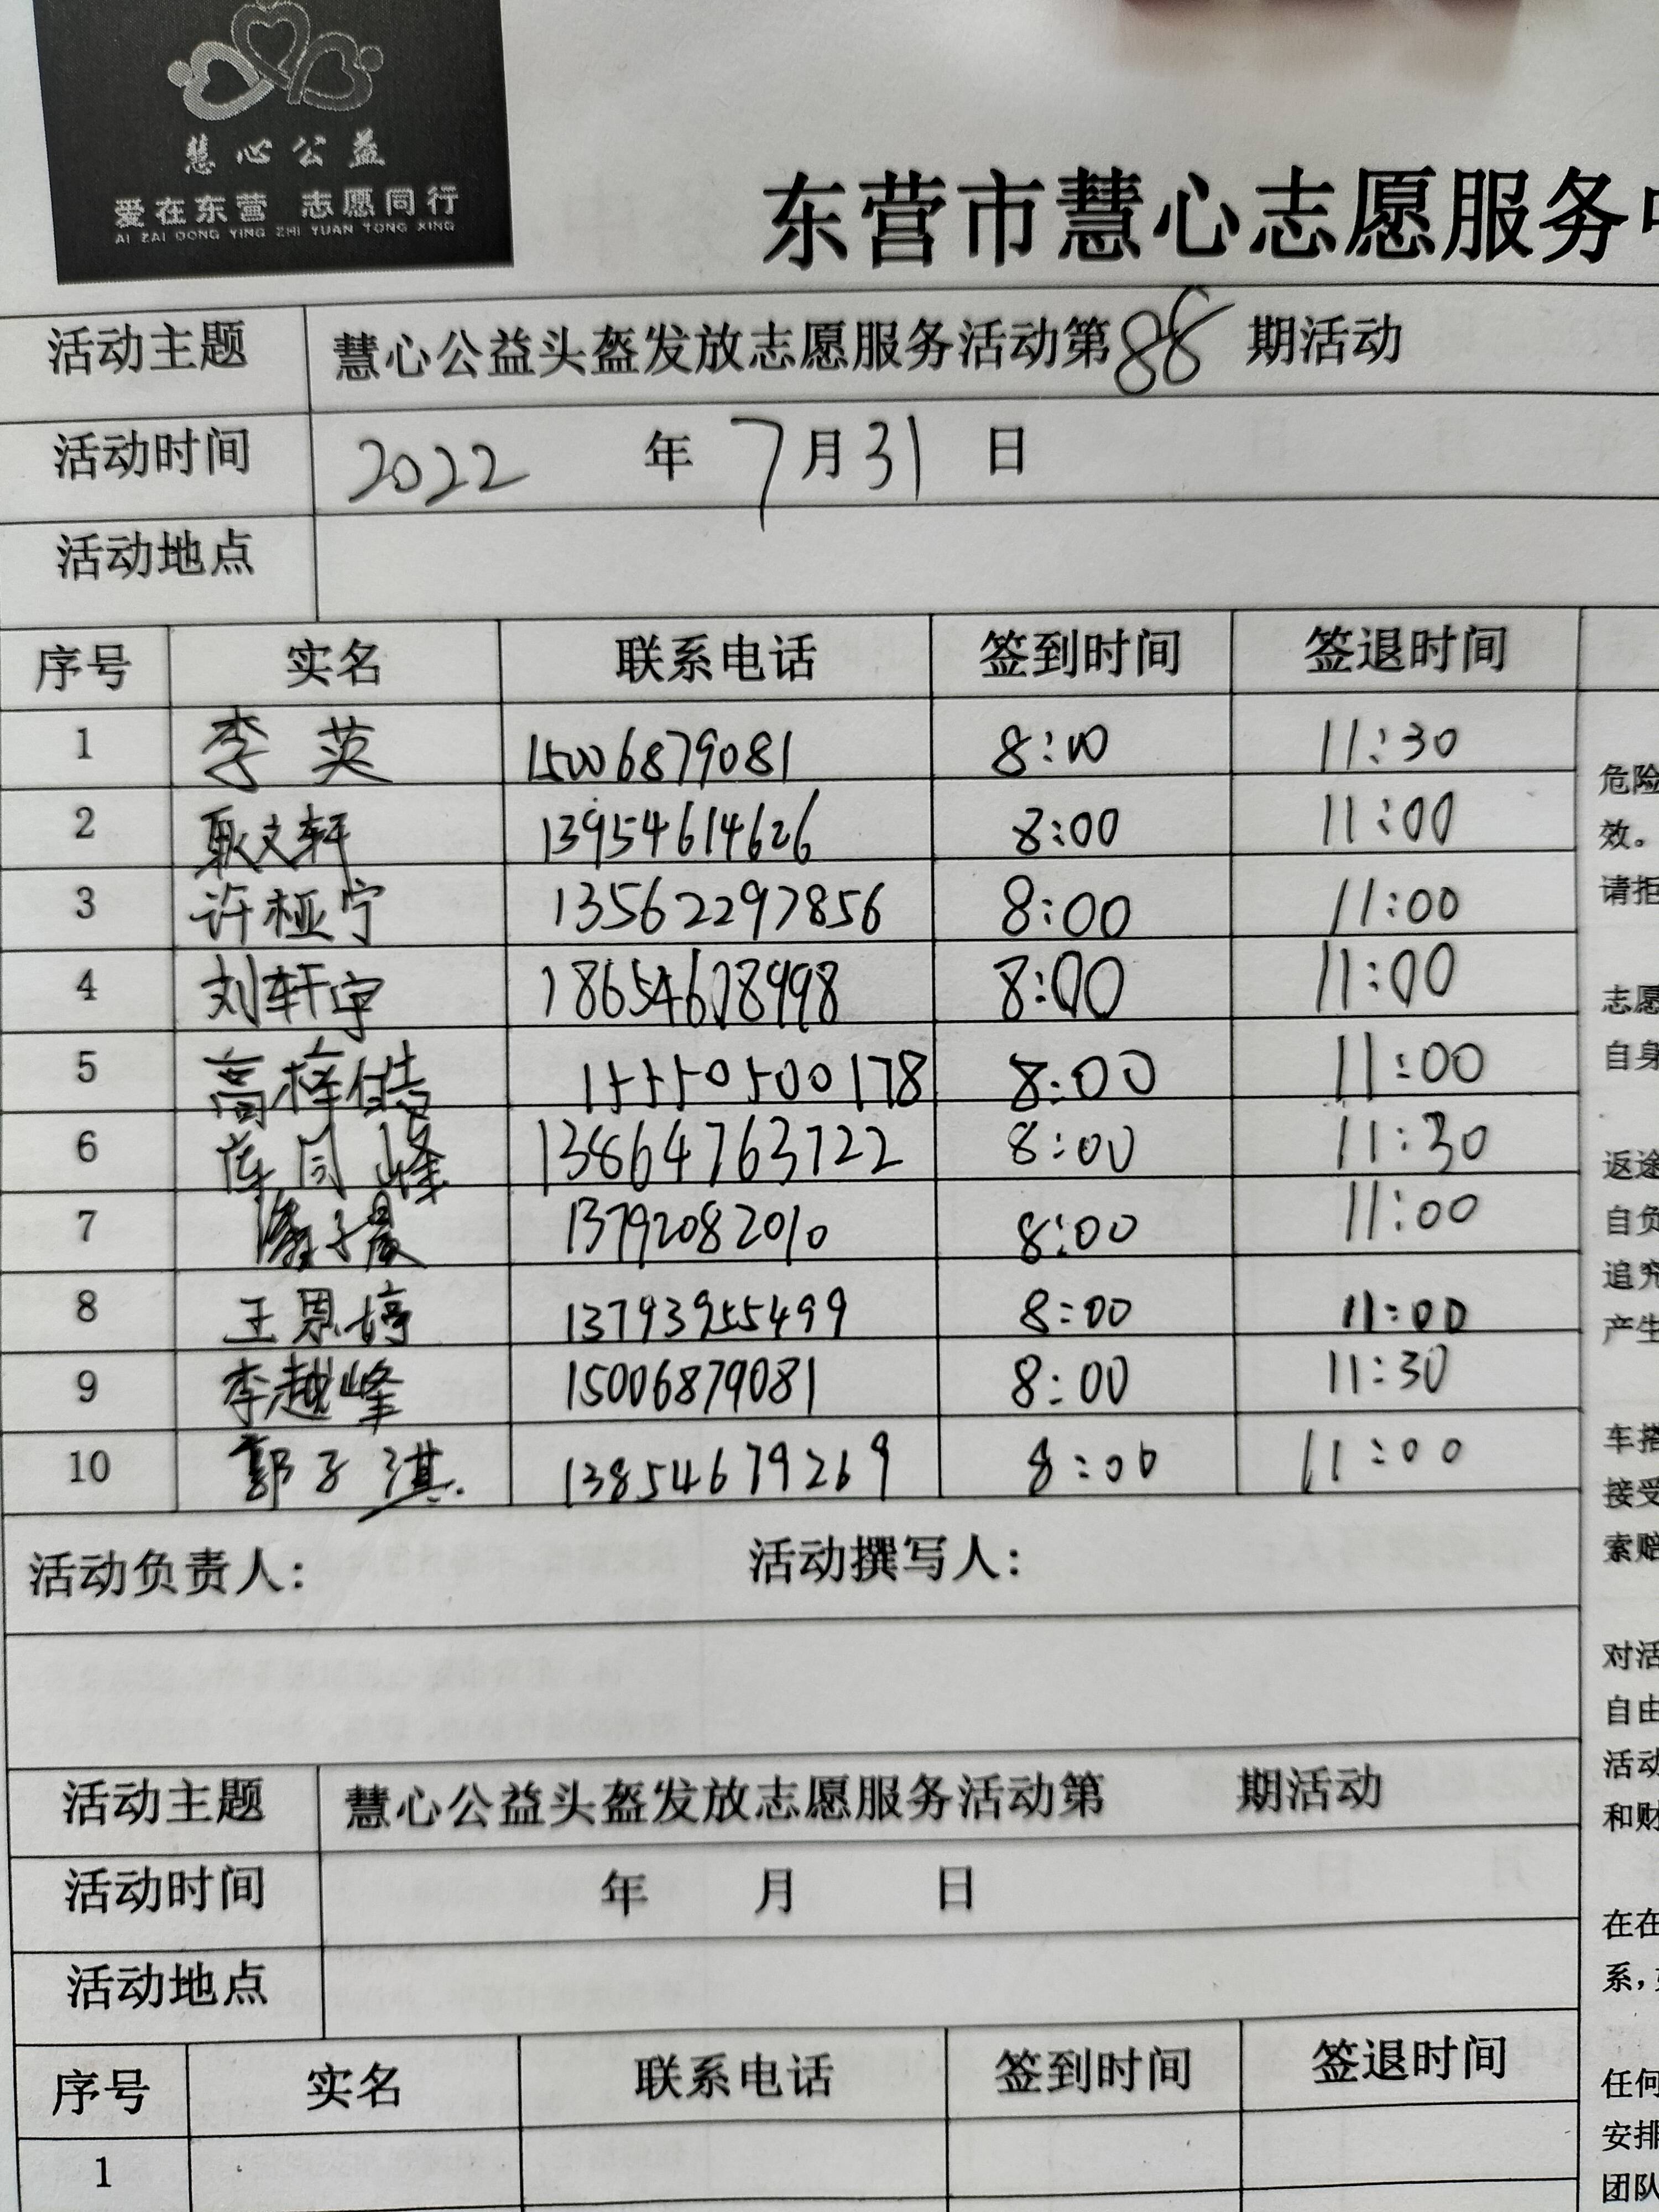 慧心公益
爱在东营 志愿同行
AI ZAI DONG YING ZHI YUAN TONG XING
东营市慧心志愿服务
活动主题 慧心公益头盔发放志愿服务活动第88期活动
活动时间 2022 年 7月31 日
活动地点
序号 实名 联系电话 签到时间 签退时间
1 李英 15006879081 8:00 11:30
2 耿文轩 13954614626 8:00 11:00
3 许桠宁 13562297856 8:00 11:00
4 刘轩宇 8:00 11:00
5 高梓皓 15550500178 8:00 11:00
6 同峰 13864763722 8:00 11:30
7 子晨 13792082010 8:00 11:00
8 王恩婷 13793955499 8:00 11:00
9 李越峰 15006879081 8:00 11:30
10 郭子淇 13854679269 8:00 11:00
活动负责人: 活动撰写人:
活动主题 慧心公益头盔发放志愿服务活动第 期活动
活动时间 年 月 日
活动地点
序号 实名 联系电话 签到时间 签退时间
1
危险
效。
请拒
志愿
自身
返途
自负
追究
产生
车搭
接受
索赔
对活
自由
活动
和财
在在
系,
任何
安排
团队